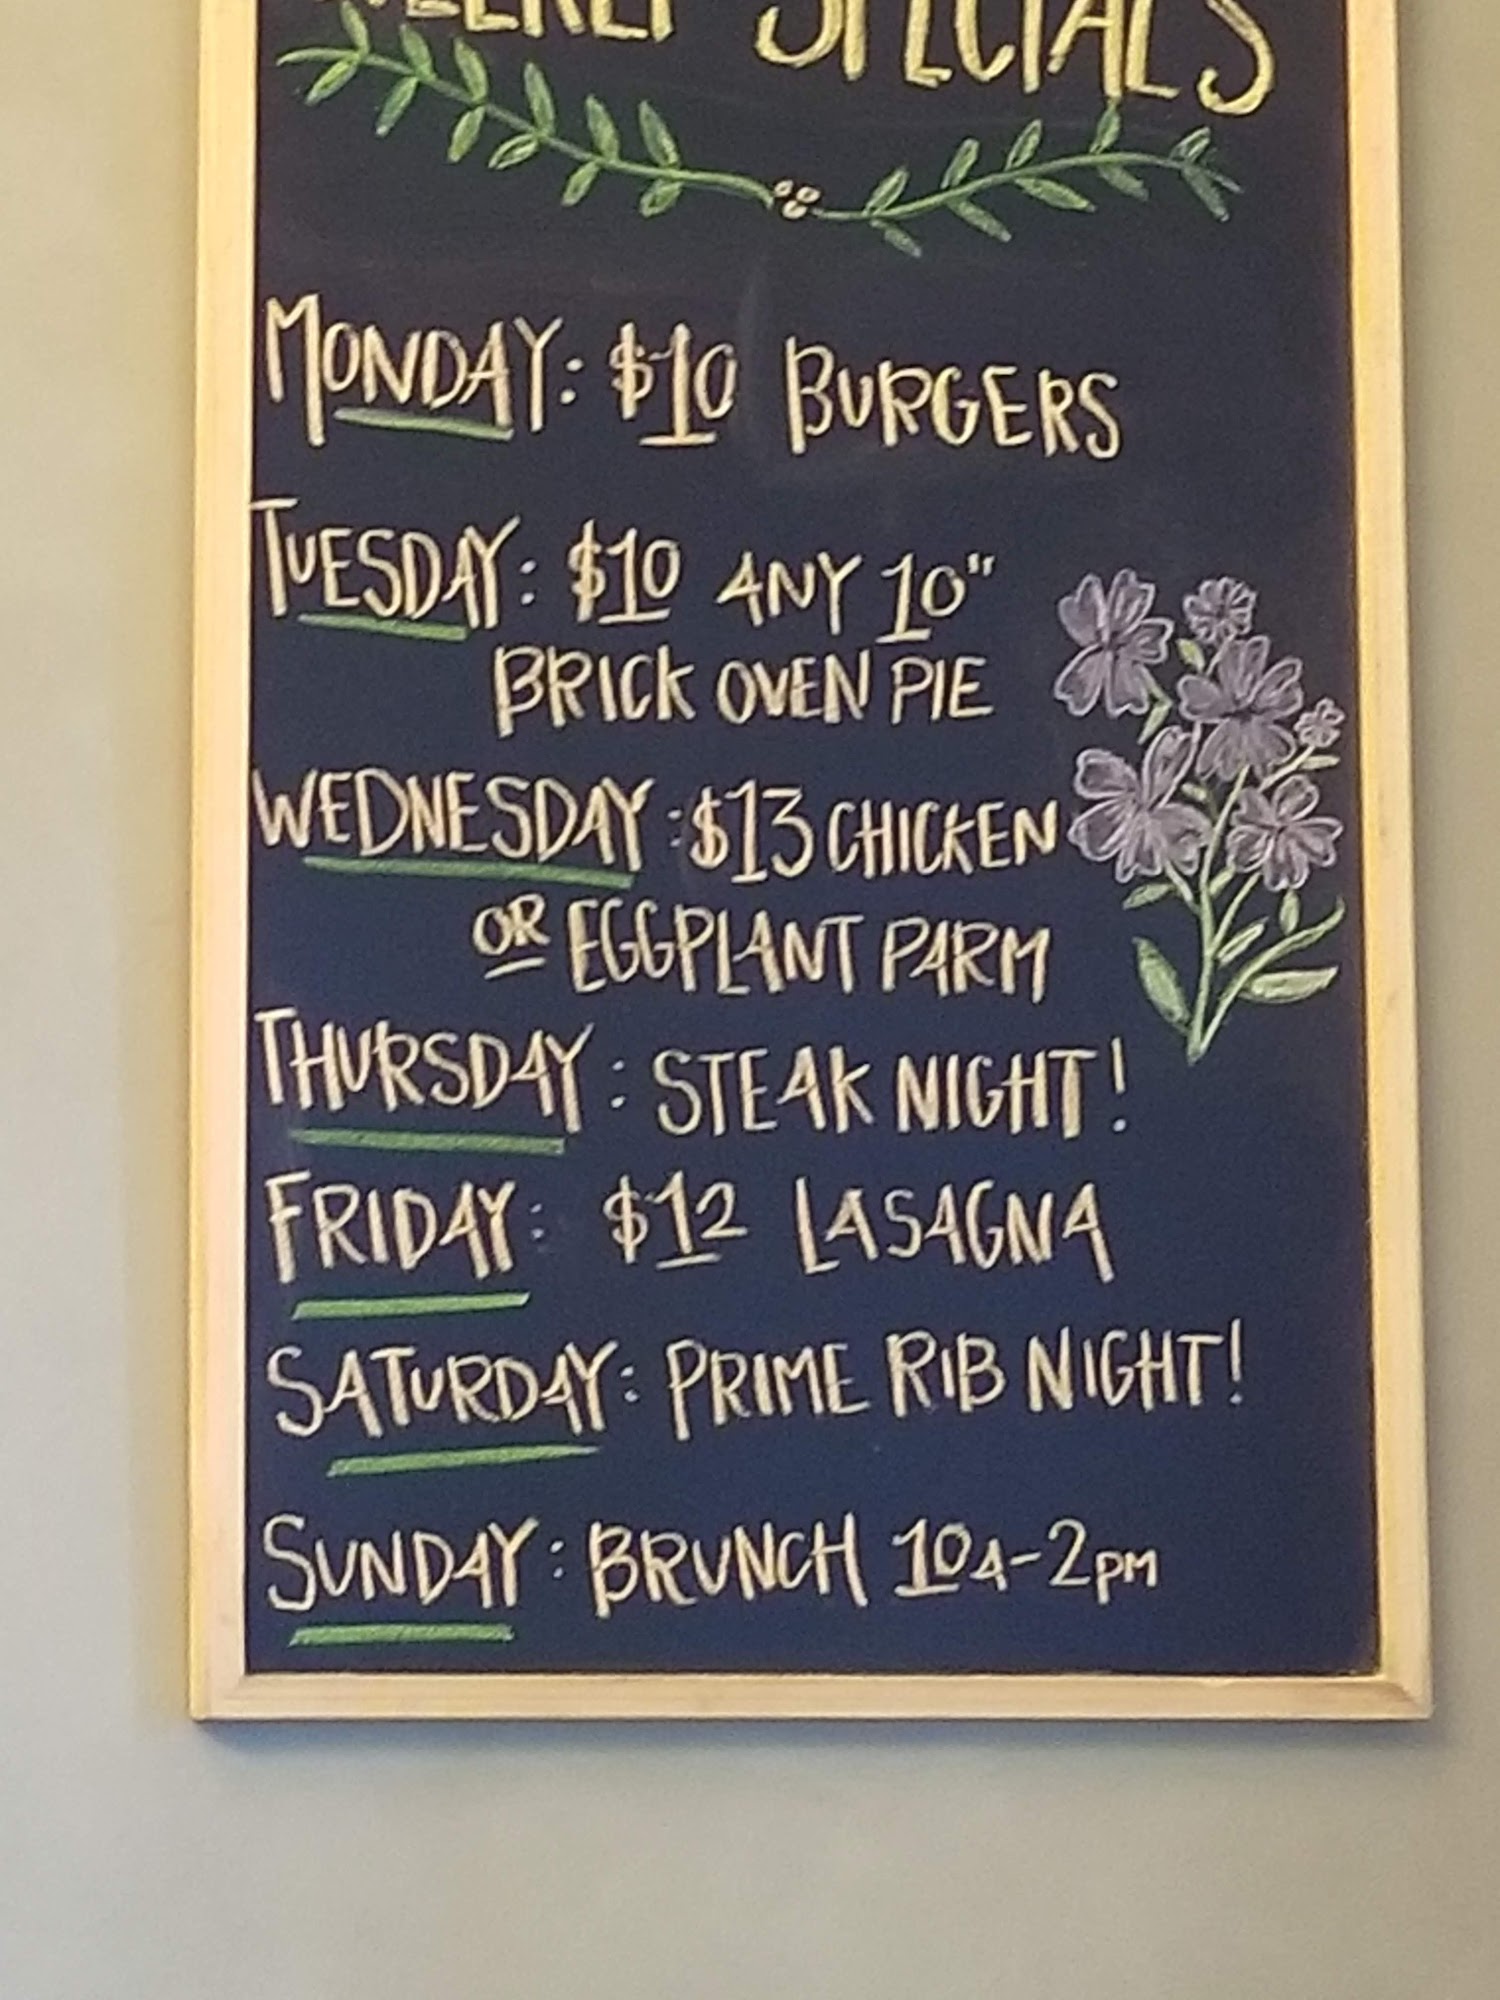 WEEKLY SPECIALS
MONDAY: $10 BURGERS
TUESDAY: $10 ANY 10"
BRICK OVEN PIE
WEDNESDAY: $13 CHICKEN
OR EGGPLANT PARM
THURSDAY: STEAK NIGHT!
FRIDAY: $12 LASAGNA
SATURDAY: PRIME RIB NIGHT!
SUNDAY: BRUNCH 10A-2PM